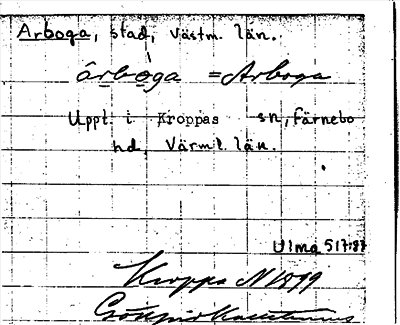 Arboga, stad, Västm. län.
årbòga = Arboga
Uppt. i Kroppas sn, Färnebo
hd, Värml. län.
Ulma 517:87
Kroppa N 1899